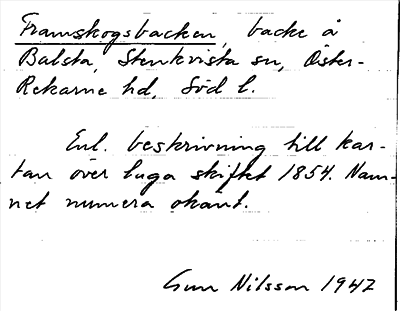 Framskogsbacken, backe å
Balsta, Stenkvista sn, Öster-
Rekarne hd, Söd l.
Enl. beskrivning till kar-
tan över laga skiftet 1854. Nam-
net numera okänt.
Gun Nilsson 1947